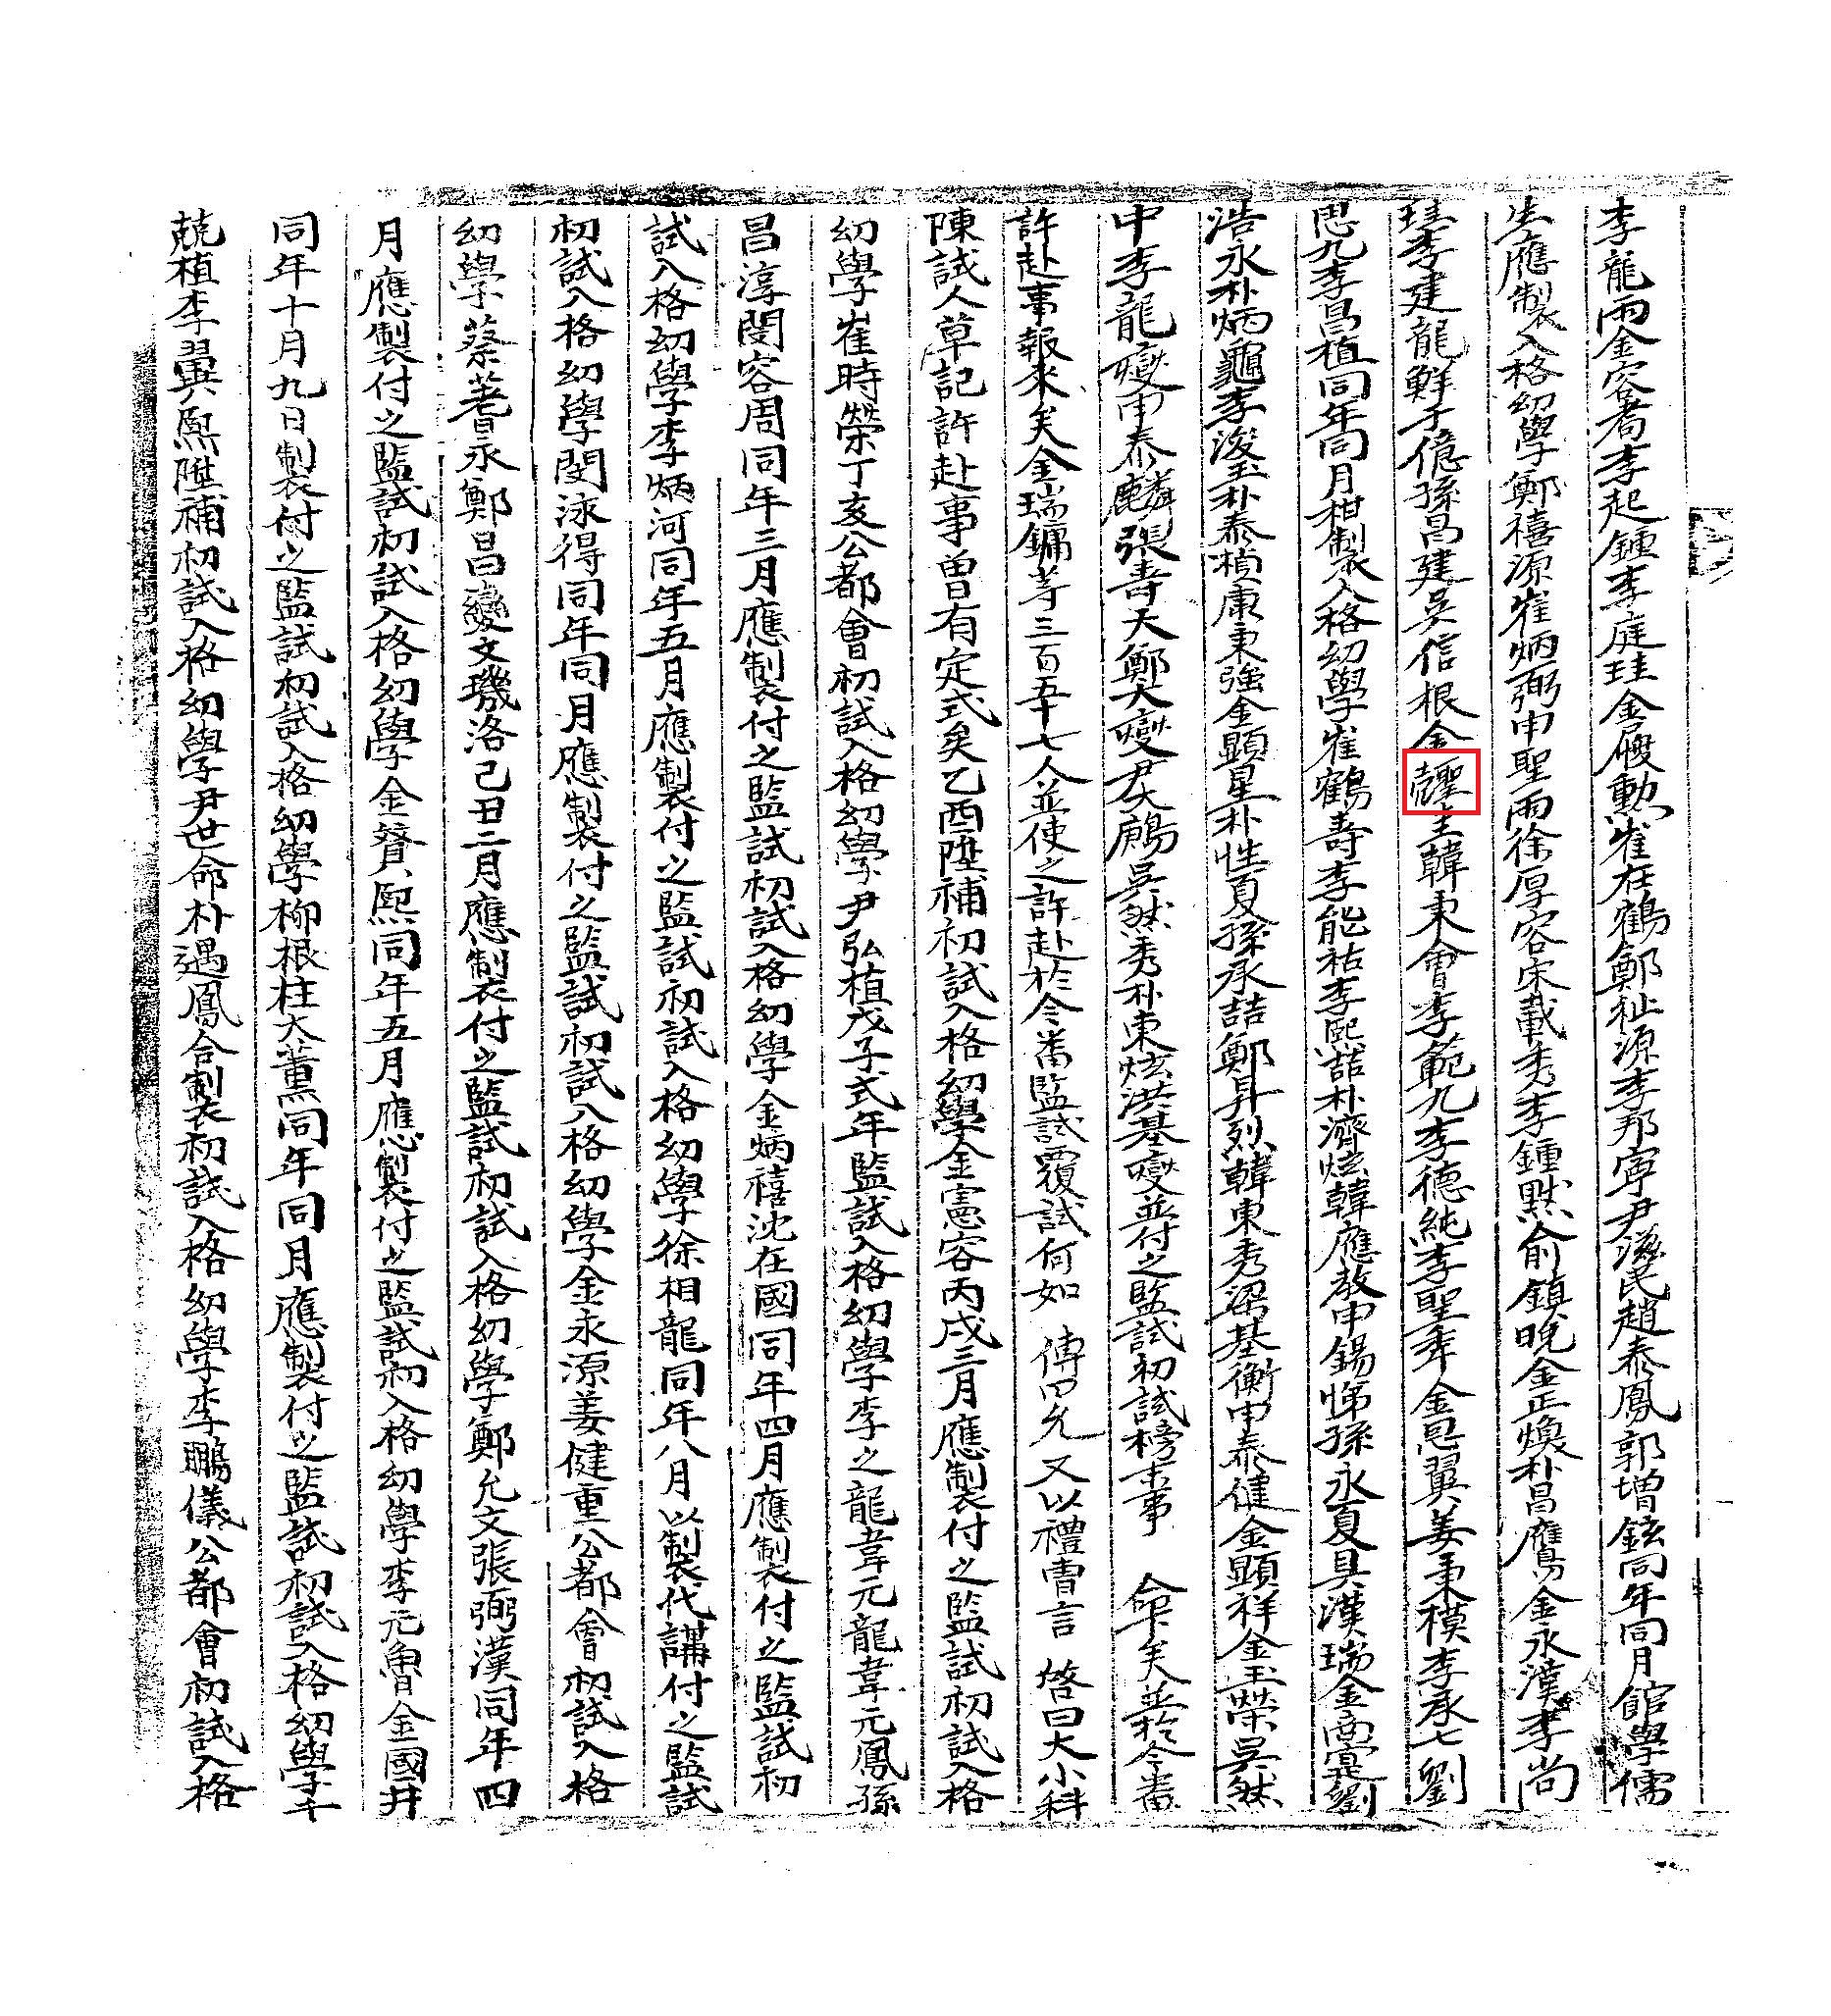 李龍雨金容耇李起鍾李庭珪金履勳崔在鶴鄭祉源李邦宰尹滋民趙泰鳳郭增鉉同年同月館學儒
生應製入格幼學鄭禧源崔炳弼申聖雨徐厚容宋載秀李鍾默俞鎭晚金正煥朴昌鷹金永漢李尚
李建龍鮮于億孫昌建吳信根金 韓東會李範九李德純李聖季金思翼姜秉模李承七劉
思九李昌植同年同月柑製入格幼學崔鶴壽李能祐李熙喆朴濟炫韓應敎申錫悌孫永夏具漢瑞金商寔劉
浩永朴炳龜李浚玉朴泰楨康秉強金顯星朴性夏孫承喆鄭昇烈韓東秀梁基衡申泰健金顯祥金玉榮吳然
中李龍燮申泰麟張壽天鄭大燮尹 吳然秀朴東炫洪基燮並付之監試初試榜事 命下矣並於今番
許赴事報來矣金瑞鏞等三百五十七人並使之許赴於今番監試覆試何如 傳曰允 又以禮曹言 啓曰大小科
陳試人草記許赴事曾有定式矣乙酉陞補初試入格幼學金憲容丙戌三月應製付之監試初試入格
幼學崔時榮丁亥公都會初試入格幼學尹弘植戊子式年監試入格幼學李之龍韋元龍韋元鳳孫
昌淳閔容周同年三月應製付之監試初試入格幼學金炳禧沈在國同年四月應製付之監試初
試入格幼學李炳河同年五月應製付之監試初試入格幼學徐相龍同年八月以製代講付之監試
初試入格幼學閔泳得同年同月應製付之監試初試入格幼學金永源姜健重公都會初試入格
幼學蔡蓍永鄭昌燮文璣洛己丑二月應製付之監試初試入格幼學鄭允文張弼漢同年四
月應製付之監試初試入格幼學金贊熙同年五月應製付之監試初入格幼學李元魯金國井
同年十月九日製付之監試初試入格幼學柳根柱太薰同年同月應製付之監試初試入格幼學千
兢植李翼熙陞補初試入格幼學尹世命朴遇鳳合製初試入格幼學李鵬儀公都會初試入格